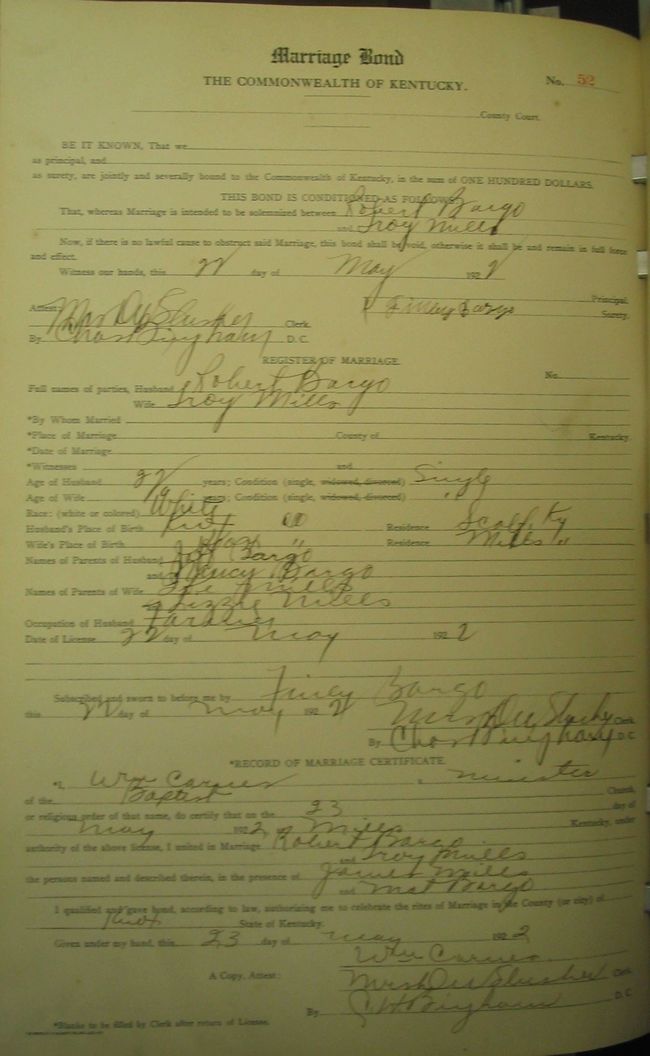 Marriage Bond
THE COMMONWEALTH OF KENTUCKY.
No. 52
County Court.
BE IT KNOWN, That we
as principal, and
as surety, are jointly and severally bound to the Commonwealth of Kentucky, in the sum of ONE HUNDRED DOLLARS.
THIS BOND IS CONDITIONED AS FOLLOWS:
That, whereas Marriage is intended to be solemnized between Robert Bargo
and Troy Mills
Now, if there is no lawful cause to obstruct said Marriage, this bond shall be void, otherwise it shall be and remain in full force
and effect.
Witness our hands, this 22 day of May 1922
Principal.
Attest: Mrs. Slusher Clerk. Finley Bargo Surety.
By Chas Bingham D. C.
REGISTER OF MARRIAGE.
Full names of parties, Husband Robert Bargo No.
Wife Troy Mills
*By Whom Married
*Place of Marriage County of Kentucky.
*Date of Marriage
*Witnesses and
Age of Husband 22 years; Condition (single, widowed, divorced) Single
Age of Wife 19 years; Condition (single, widowed, divorced) "
Race: (white or colored) White
Husband's Place of Birth Knox Residence Scalf, Ky
Wife's Place of Birth Knox " Residence Mills "
Names of Parents of Husband Bargo
and Nancy Bargo
Names of Parents of Wife Mills
& Lizzie Mills
Occupation of Husband Farmer
Date of License 22 day of May 1922
Subscribed and sworn to before me by Finley Bargo
this 22 day of May 1922 Mrs. Slusher Clerk
By Chas Bingham D. C.
*RECORD OF MARRIAGE CERTIFICATE.
*I, Wm Carnes a minister
of the Baptist Church,
or religious order of that name, do certify that on the 23 day of
May 1922, at Mills Kentucky, under
authority of the above license, I united in Marriage Robert Bargo
and Troy Mills
the persons named and described therein, in the presence of James Mills
and Mat Bargo
I qualified and gave bond, according to law, authorizing me to celebrate the rites of Marriage in the County (or city) of
Knox State of Kentucky.
Given under my hand, this 23 day of May 1922
Wm Carnes
A Copy, Attest: Mrs. Slusher Clerk
By C H Bingham D. C.
*Blanks to be filled by Clerk after return of License.